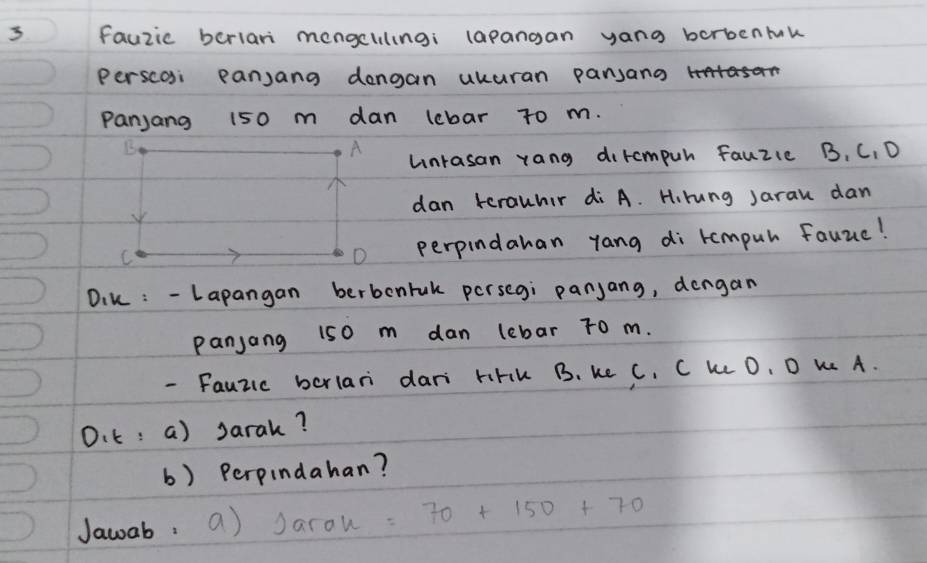 3 Fauzie berlari mengelilingi lapangan yang berbentuk
persegi panjang dengan ukuran panjang lintasan
panjang 150 m dan lebar 70 m.
B A
Lintasan yang ditempuh Fauzie B, C, D
dan terakhir di A. Hitung jarak dan
C D
perpindahan yang di tempuh Fauzie!
Dik : - Lapangan berbentuk persegi panjang, dengan
panjang 150 m dan lebar 70 m.
- Fauzie berlari dari titik B. ke C, C ke D, D ke A.
Dit : a) Jarak?
b) Perpindahan?
Jawab : a) Jarak = 70 + 150 + 70